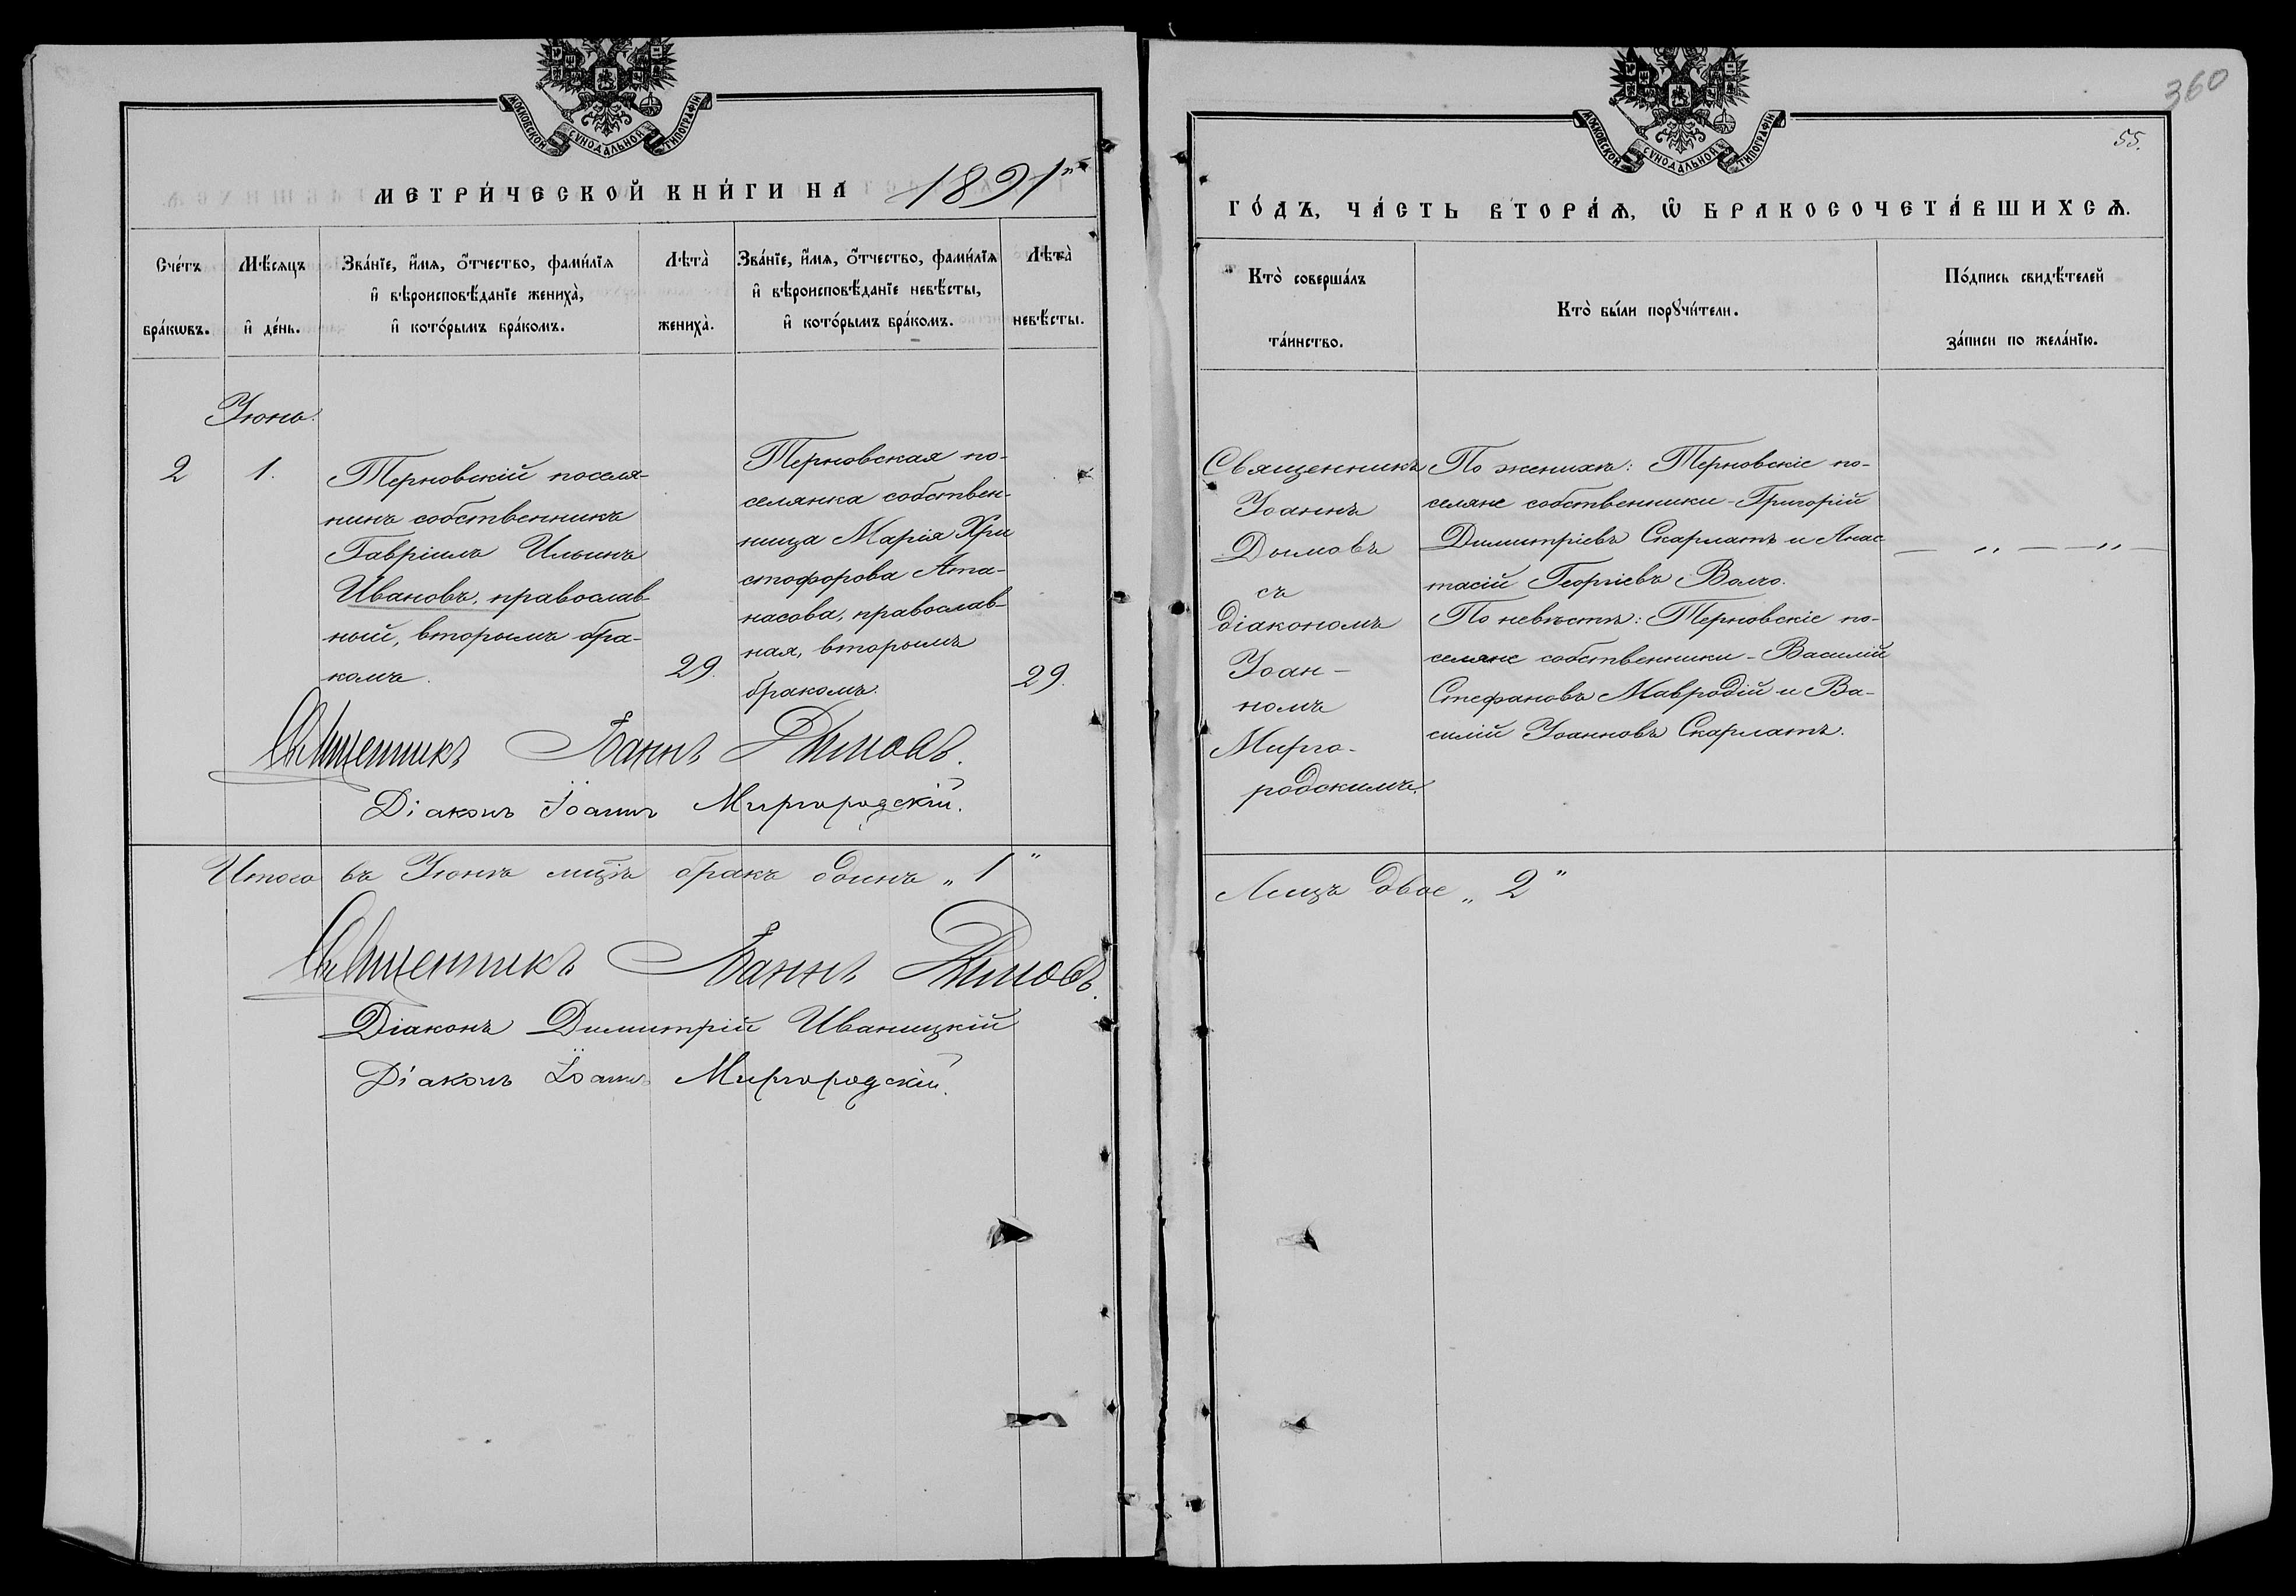 МОСКОВСКОЙ СУНОДАЛЬНОЙ ТИПОГРАФІИ
МЕТРИ́ЧЕСКОЙ КНИ́ГИ НА 1891й
Сче́тъ бра́кωвъ.
Мѣ́сяцъ и҆ де́нь.
Зва́нїе, и҆́мѧ, ѻ҆́тчество, фами́лїѧ
и҆ вѣроисповѣ́данїе жениха̀,
и҆ кото́рымъ бра́комъ.
Лѣта̀ жениха̀.
Зва́нїе, и҆́мѧ, ѻ҆́тчество, фами́лїѧ
и҆ вѣроисповѣ́данїе невѣ́сты,
и҆ кото́рымъ бра́комъ.
Лѣта̀ невѣ́сты.
Іюнь.
2
1.
Терновскій поселя-
нинъ собственникъ
Гавріилъ Ильинъ
Ивановъ, православ-
ный, вторымъ бра-
комъ.
29.
Терновская по-
селянка собствен-
ница Марія Хри
стофорова Ата-
насова, православ-
ная, вторымъ
бракомъ.
29.
Священникъ Іоаннъ Дымовъ.
Діаконъ Іоаннъ Миргородскій.
Итого въ Іюнѣ мцѣ бракъ одинъ „1"
Священникъ Іоаннъ Дымовъ.
Діаконъ Димитрій Иваницкій
Діаконъ Іоаннъ Миргородскій.
360
55.
МОСКОВСКОЙ СУНОДАЛЬНОЙ ТИПОГРАФІИ
ГО́ДЪ, ЧА́СТЬ ВТОРА́Ѧ, Ѽ БРАКОСОЧЕТА́ВШИХСѦ.
Кто̀ соверша́лъ
та́инство.
Кто̀ бы́ли порꙋчи́тели.
По́дпись свидѣ́телей
за́писи по жела́нїю.
Священникъ
Іоаннъ
Дымовъ
съ
діакономъ
Іоан-
номъ
Мирго-
родскимъ.
По женихѣ: Терновскіе по-
селяне собственники - Григорій
Димитріевъ Скарлатъ и Анас
тасій Георгіевъ Волчо.
По невѣстѣ: Терновскіе по-
селяне собственники - Василій
Стефановъ Мавродій и Ва-
силій Іоанновъ Скарлатъ.
— „ — — „ —
Лицъ двое „2"